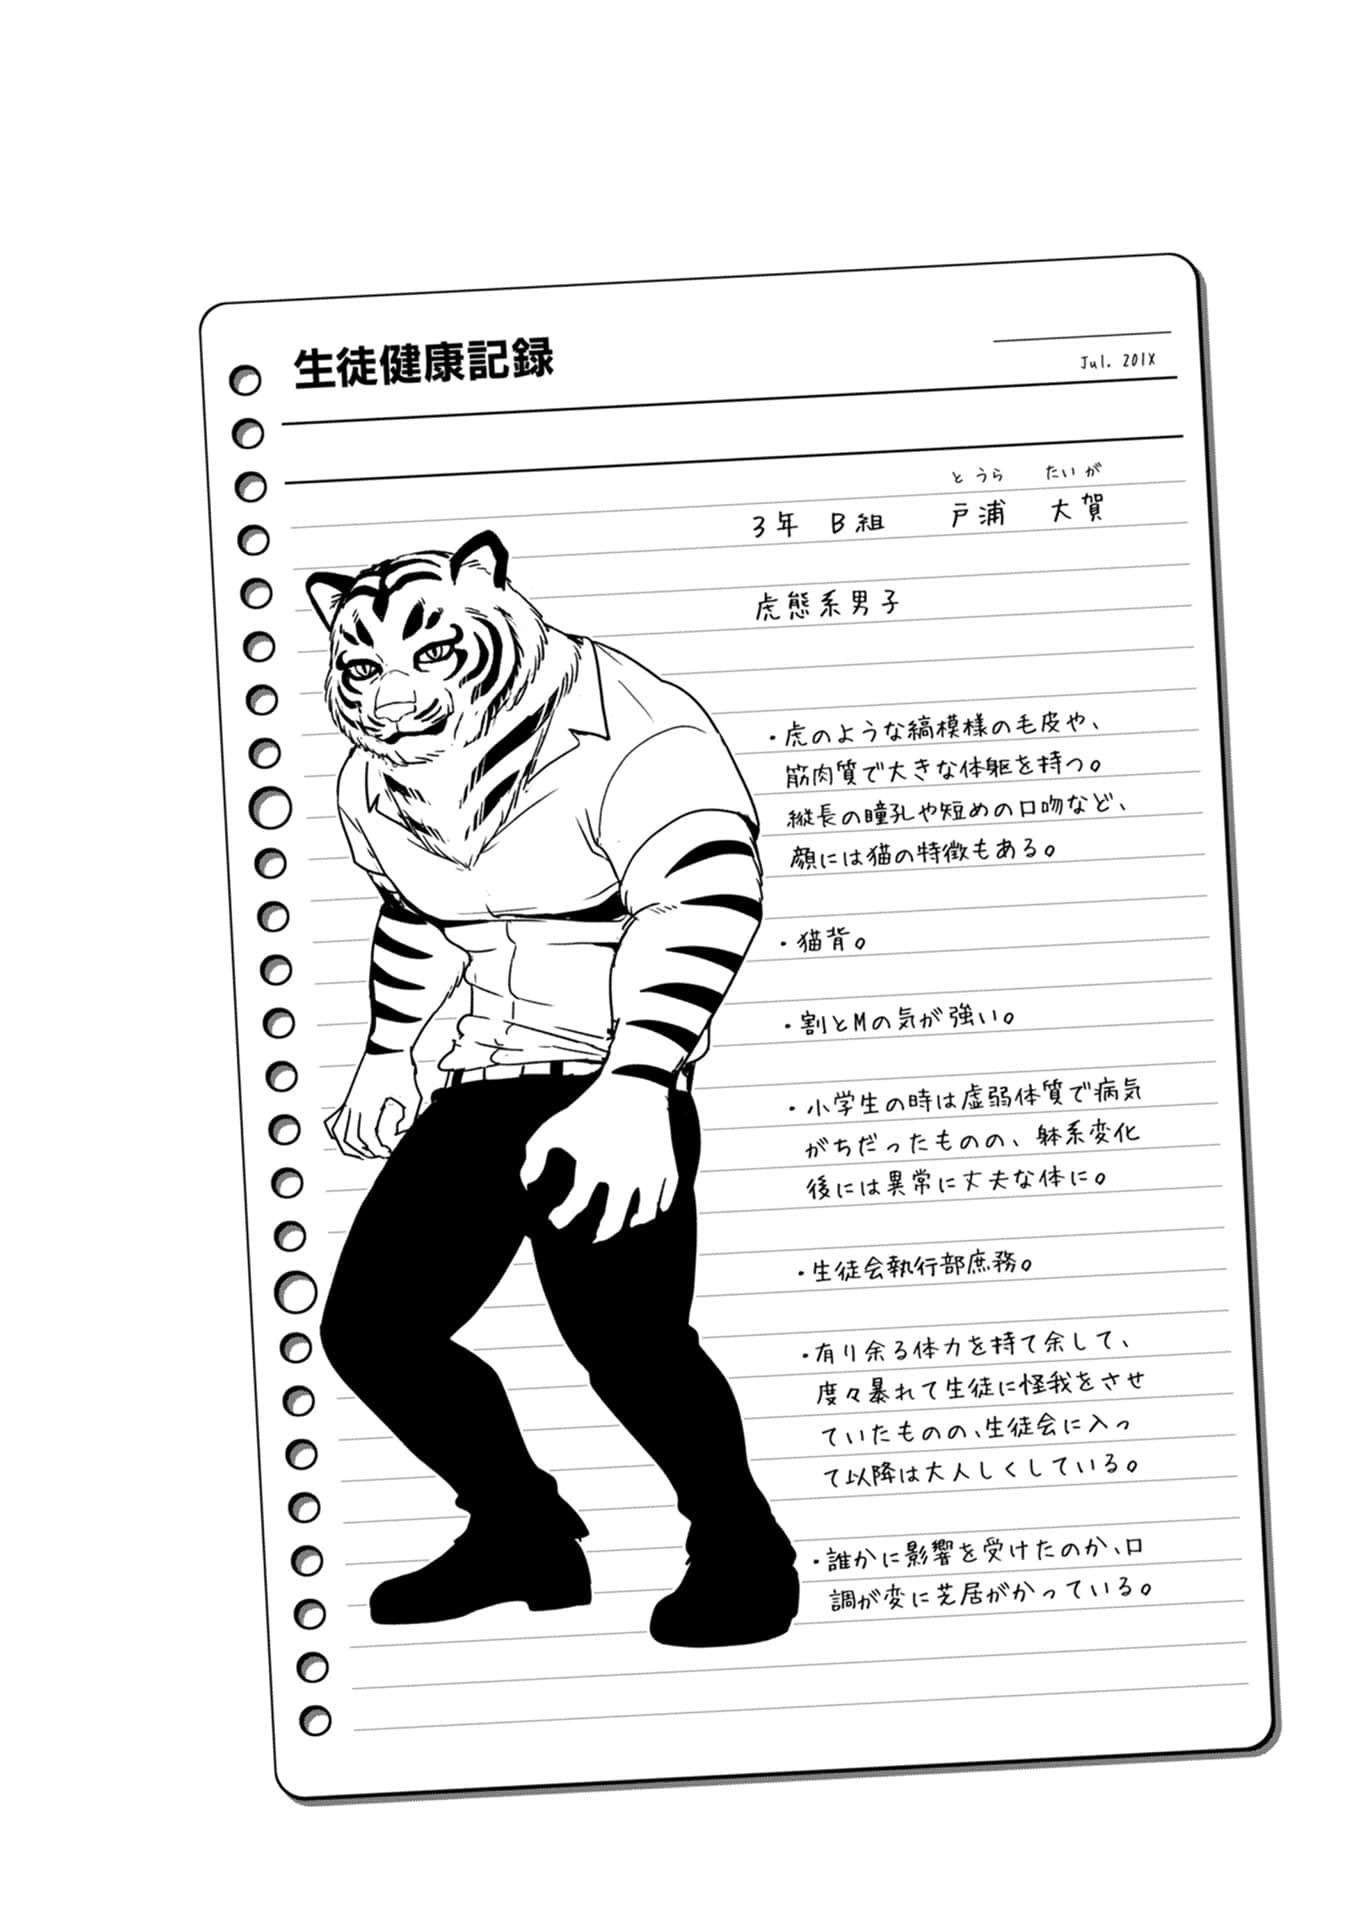 生徒健康記録
Jul. 201X
とうら たいが
3年 B組 戸浦 大賀
虎態系男子
・虎のような縞模様の毛皮や、
筋肉質で大きな体躯を持つ。
縦長の瞳孔や短めの口吻など、
顔には猫の特徴もある。
・猫背。
・割とMの気が強い。
・小学生の時は虚弱体質で病気
がちだったものの、躰系変化
後には異常に丈夫な体に。
・生徒会執行部庶務。
・有り余る体力を持て余して、
度々暴れて生徒に怪我をさせ
ていたものの、生徒会に入っ
て以降は大人しくしている。
・誰かに影響を受けたのか、口
調が変に芝居がかっている。